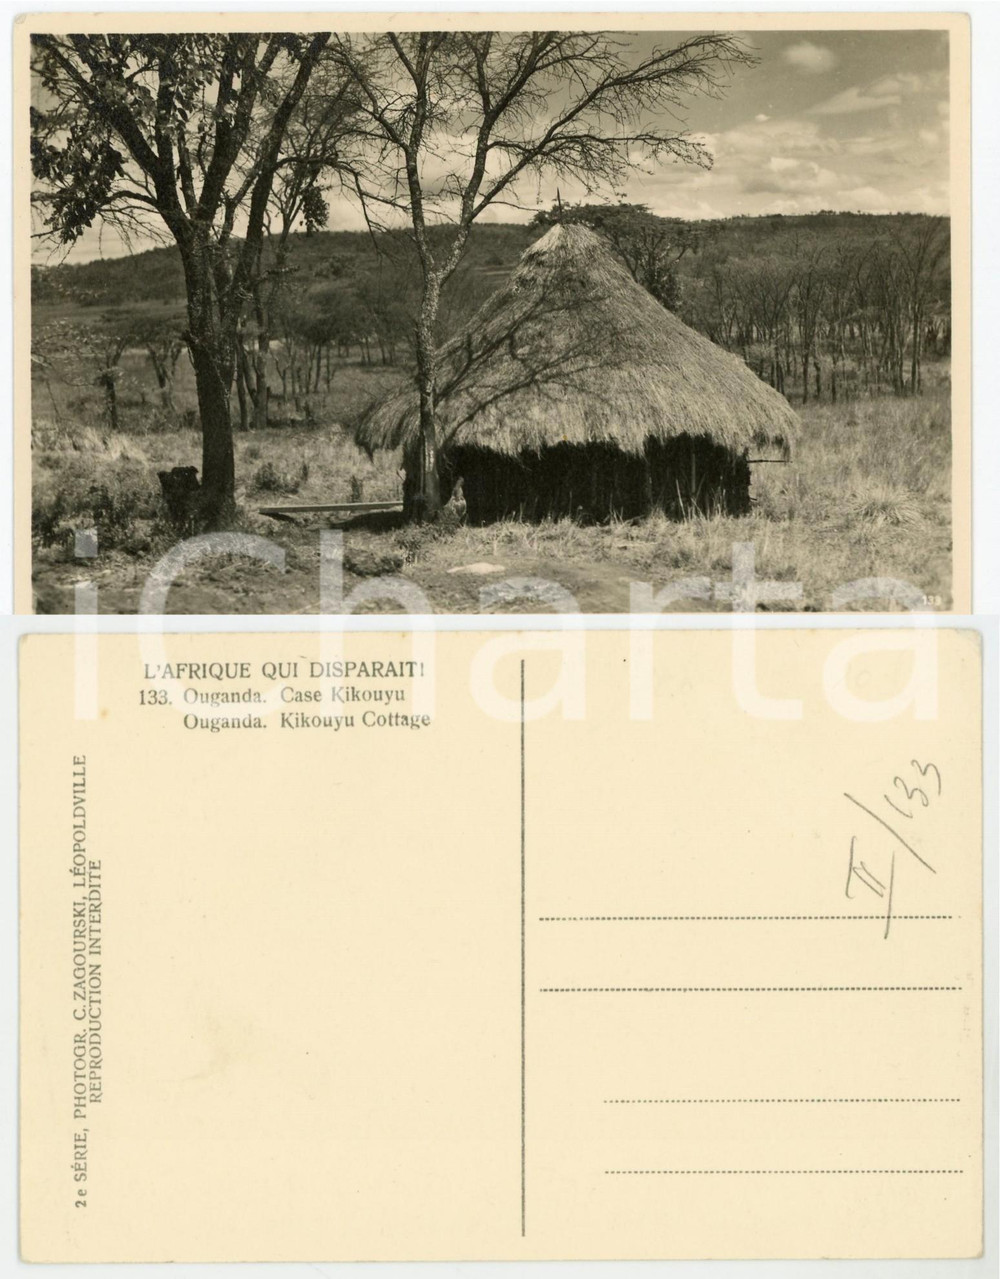 133
iCharta
L'AFRIQUE QUI DISPARAIT!
133. Ouganda. Case Kikouyu
Ouganda. Kikouyu Cottage
2e SÉRIE, PHOTOGR. C. ZAGOURSKI, LÉOPOLDVILLE
REPRODUCTION INTERDITE
II/133